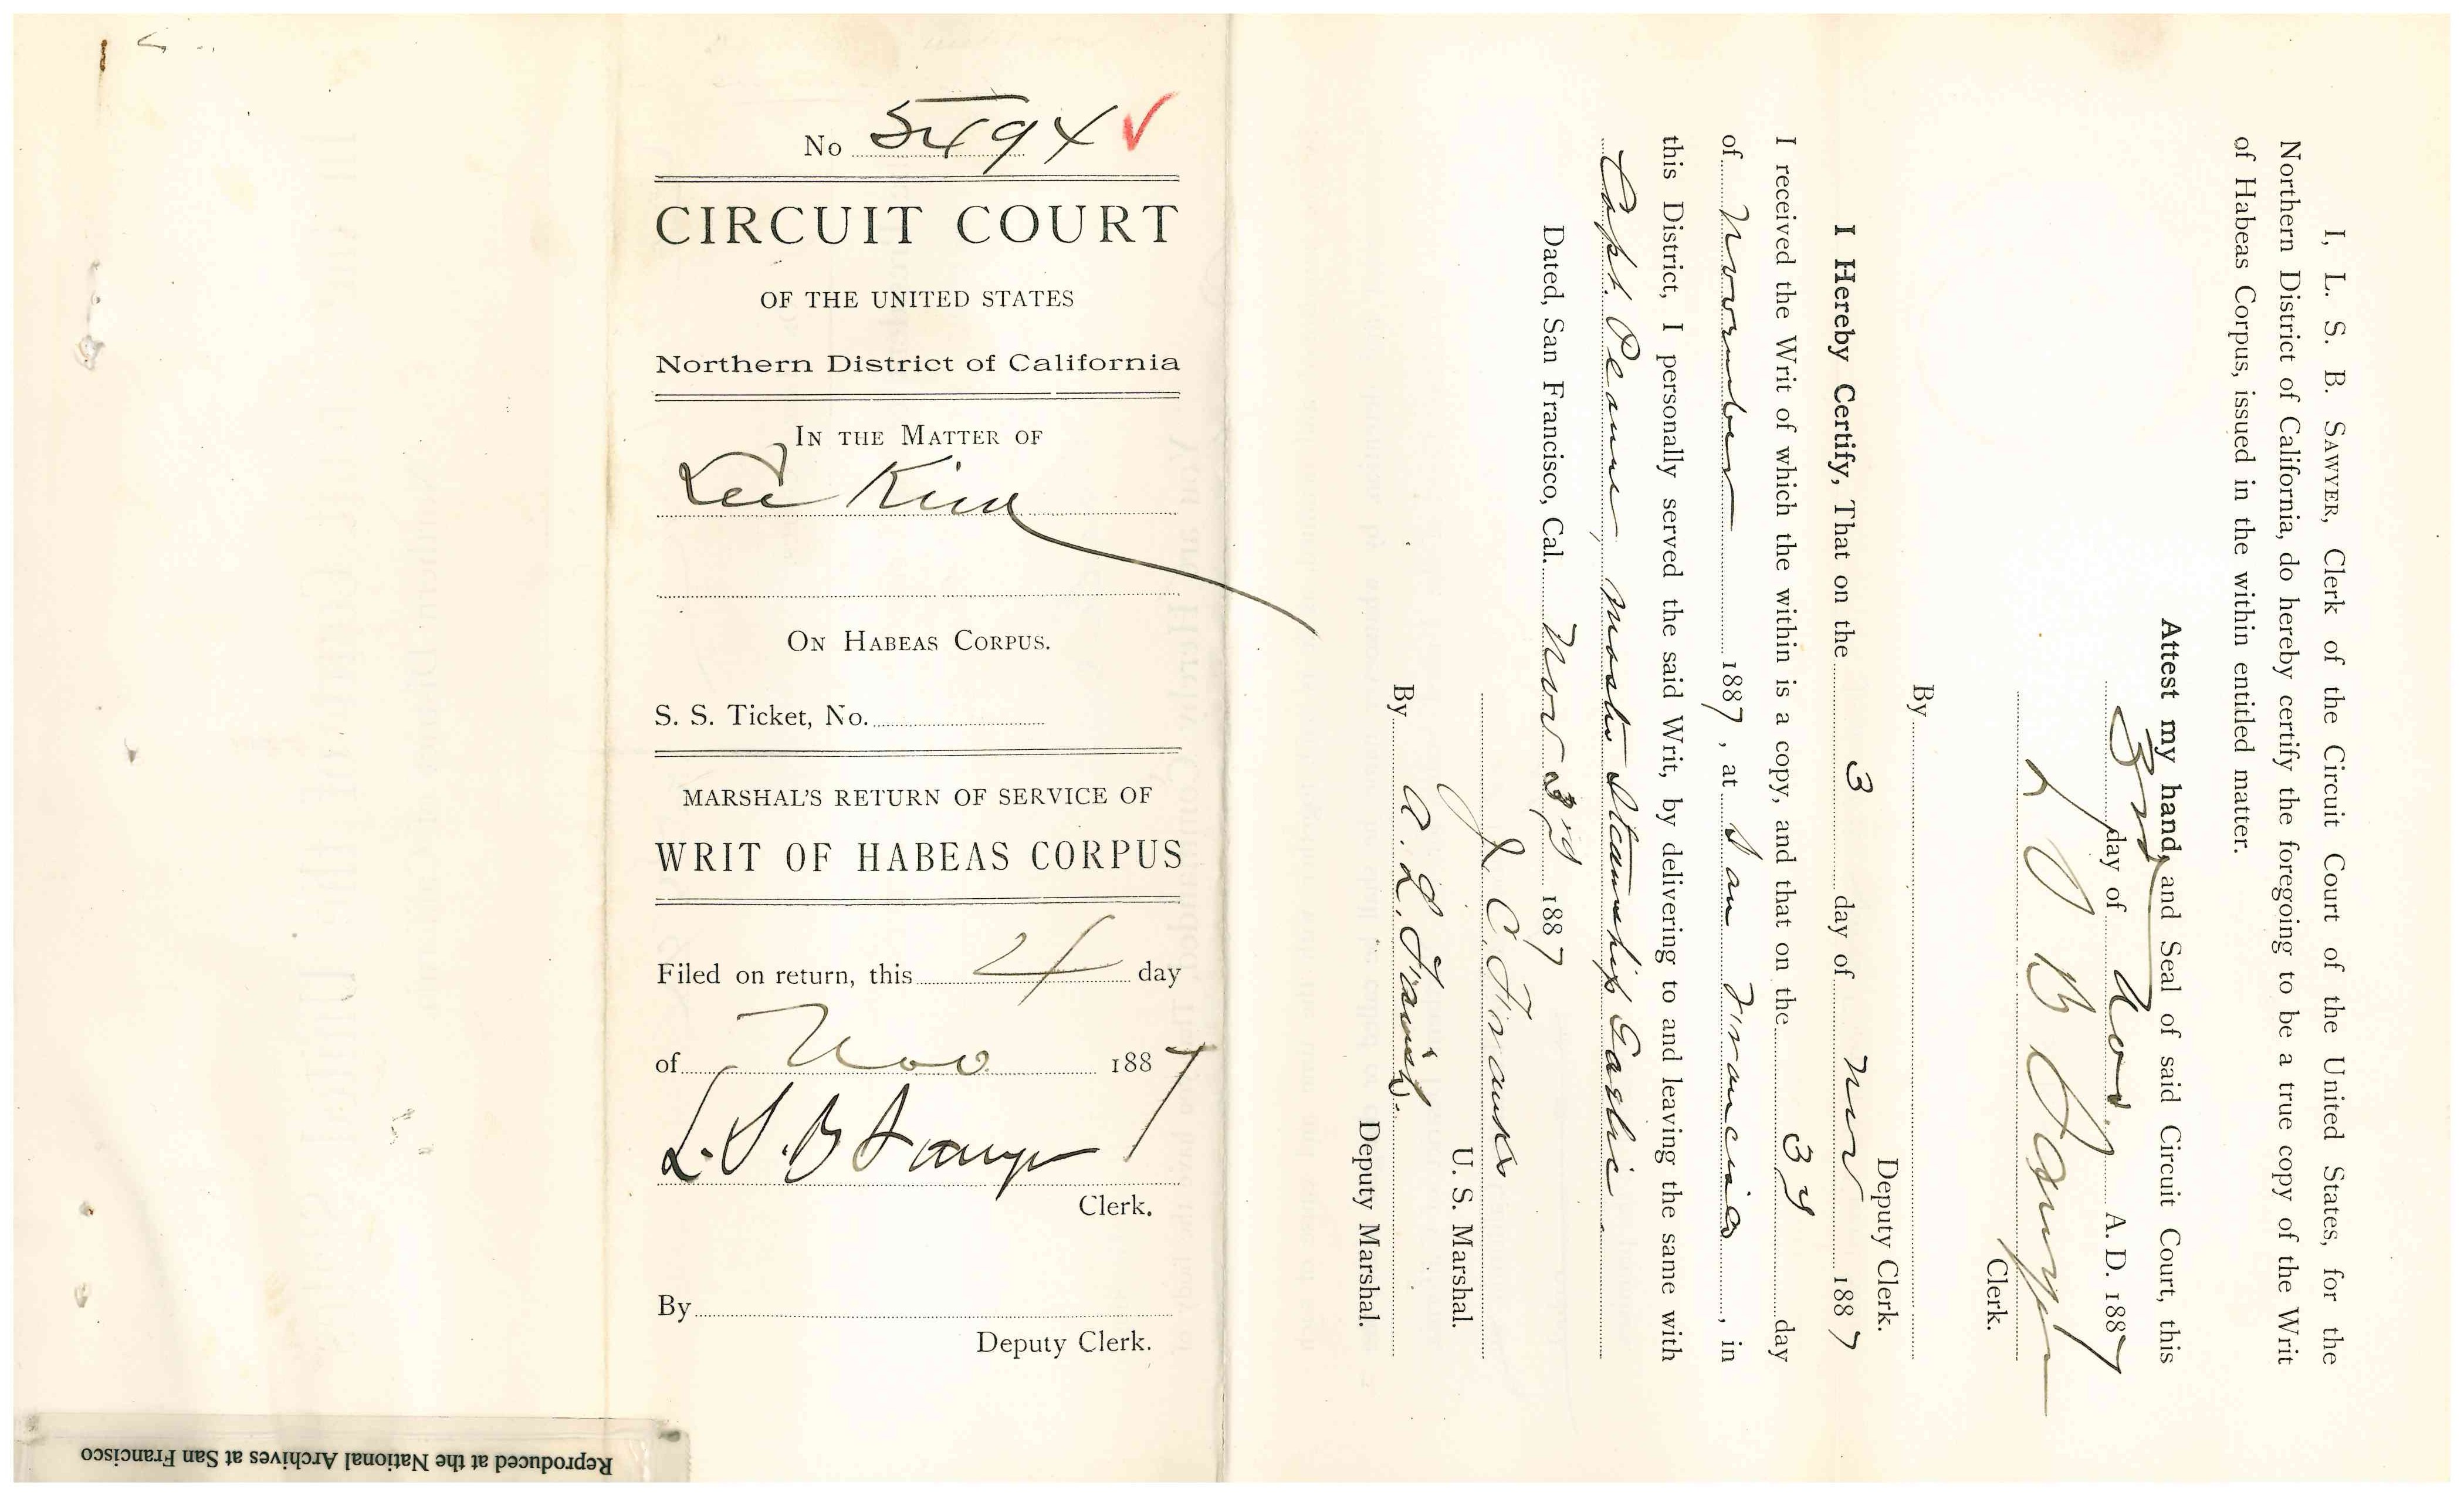 No 5494 ✓
CIRCUIT COURT
OF THE UNITED STATES
Northern District of California
IN THE MATTER OF
Lee Kim
ON HABEAS CORPUS.
S. S. Ticket, No.
MARSHAL'S RETURN OF SERVICE OF
WRIT OF HABEAS CORPUS
Filed on return, this 4 day
of Nov 1887
L. S. B Sawyer
Clerk.
By
Deputy Clerk.
I, L. S. B. SAWYER, Clerk of the Circuit Court of the United States, for the
Northern District of California, do hereby certify the foregoing to be a true copy of the Writ
of Habeas Corpus, issued in the within entitled matter.
Attest my hand, and Seal of said Circuit Court, this
3rd day of Nov. A. D. 1887
L S B Sawyer
Clerk.
By
Deputy Clerk.
I Hereby Certify, That on the 3 day of Nov 1887
I received the Writ of which the within is a copy, and that on the 3d day
of November 1887, at San Francisco, in
this District, I personally served the said Writ, by delivering to and leaving the same with
Capt. Pearne, Master Steamship Gaelic.
Dated, San Francisco, Cal. Nov 3rd 1887
J. C. Franks
U. S. Marshal.
By A. L. Farish.
Deputy Marshal.
Reproduced at the National Archives at San Francisco